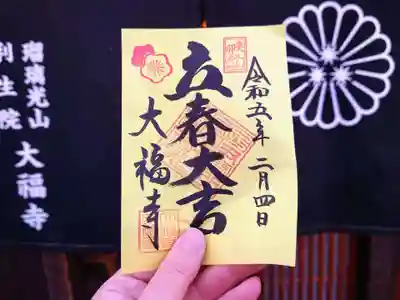 令和五年 二月四日
立春大吉
大福寺
瑠璃光山
利生院
大福寺